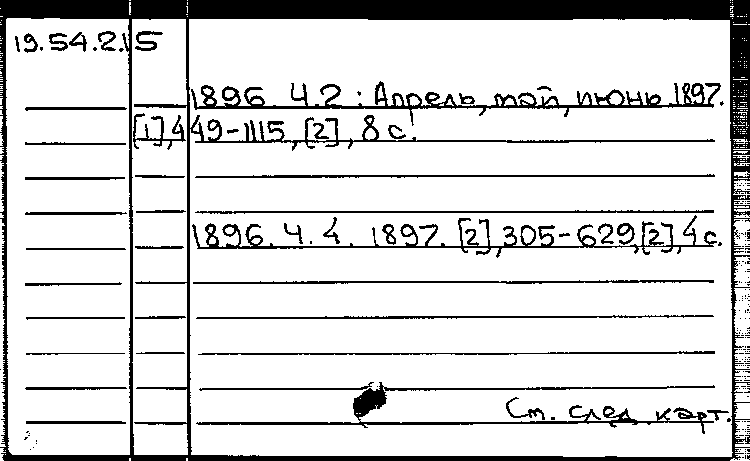 19.54.2.15
1896. Ч.2 : Апрель, май, июнь 1897.
[1], 449-1115, [2], 8 с.
1896. Ч. 4. 1897. [2], 305-629, [2], 4 с.
См. след. карт.